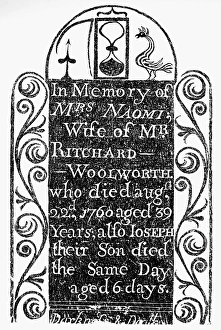 In Memory of
MRS NAOMI,
Wife of MR
RITCHARD
WOOLWORTH
who died augᵗ
22ᵈ, 1760 aged 39
Years, alſo IOSEPH
their Son died
the Same Day
aged 6 days.